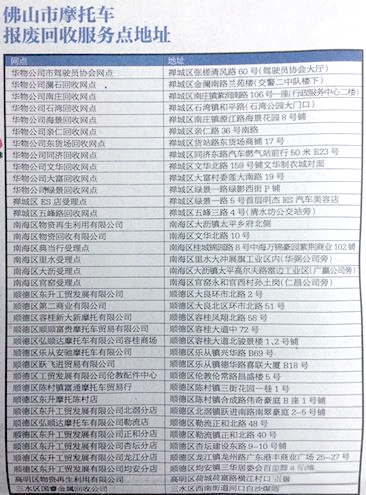 佛山市摩托车
报废回收服务点地址
网点 地址
华物公司市驾驶员协会网点 禅城区张槎清风路60号(驾驶员协会大厅)
华物公司澜石回收网点 禅城区金澜南路兰苑楼(交警二中队楼下)
华物公司南庄回收网点 禅城区南庄镇紫洞南路106号一座(行政服务中心二楼)
华物公司石湾回收网点 禅城区石湾镇和平路(石湾公园大门口)
华物公司海景回收网点 禅城区南庄镇源江路海景花园8号铺
华物公司亲仁回收网点 禅城区亲仁路36号南路
华物公司东货场回收网点 禅城区货站路东货场商铺17号
华物公司同济回收网点 禅城区同济东路汽车燃气站前行50米E23号
华物公司文华回收网点 禅城区文华北路159号铺文华制衣城对面
华物公司大富回收网点 禅城区大富村委莲大南路19号
华物公司绿景回收网点 禅城区绿景一路绿影西街P铺
禅城区ES店受理点 禅城区绿景一路5号首层明杰ES汽车美容店
禅城区五峰路回收网点 禅城区五峰三路4号(清水坊公交站旁)
南海区物资再生利用有限公司 南海区大沥镇太平乡府北侧
南海区物资回收公司 南海区文华北路10号
南海区典当行受理点 南海区桂城锦园路8号中海万锦豪园紫荆商业102铺
南海区里水受理点 南海区里水大冲展旗工业区内(华弼公司旁)
南海区大沥受理点 南海区大沥镇太平高尔夫路雷边工业区(广赢公司旁)
南海区官窑受理点 南海区官窑永和官西村孙土岗(仁昌公司旁)
顺德区东升工贸发展有限公司 顺德区大良环市北路2号
顺德区第二商业有限公司 顺德区大良北区环市北路51号
顺德区容桂新大新摩托公司 顺德区容桂凤翔北路58号
顺德区顺顺富贵摩托贸易有限公司 顺德区容桂大道中72号
顺德区弘顺达摩托车有限公司容桂商场 顺德区容桂大道北骏景楼1、2号铺
顺德区乐从安驰摩托车有限公司 顺德区乐从镇兴华路B69号
顺德区跃飞进贸易有限公司 顺德区乐从镇德华路喜联大厦B18号
顺德区工贸发展有限公司伦教配件中心 顺德区伦教伦常路昌盛楼5号
顺德区陈村镇富通摩托车贸易行 顺德区陈村镇三街花园一巷1号
顺德区东升摩托陈村店 顺德区陈村镇合成路伟奇豪庭B座1号铺
顺德区东升工贸发展有限公司北滘分店 顺德区北滘镇跃进南路南翠豪庭2-5号铺
顺德区弘顺达摩托有限公司勒流店 顺德区勒流镇正和北路48号
顺德区东升工贸发展有限公司正和分店 顺德区勒流镇正和北路40号
顺德区东升工贸发展有限公司杏坛分店 顺德区杏坛建设东路9-10号铺
顺德区东升工贸发展有限公司龙江分店 顺德区龙江镇龙洲路广东港丰商业广场25-27号
顺德区东升工贸发展有限公司均安分店 顺德区均安镇三华居委会
高明区物资再生利用有限公司 高明区荷城荷富路横江村口
三水区国睿金属回收公司 三水区西南街道河口白沙